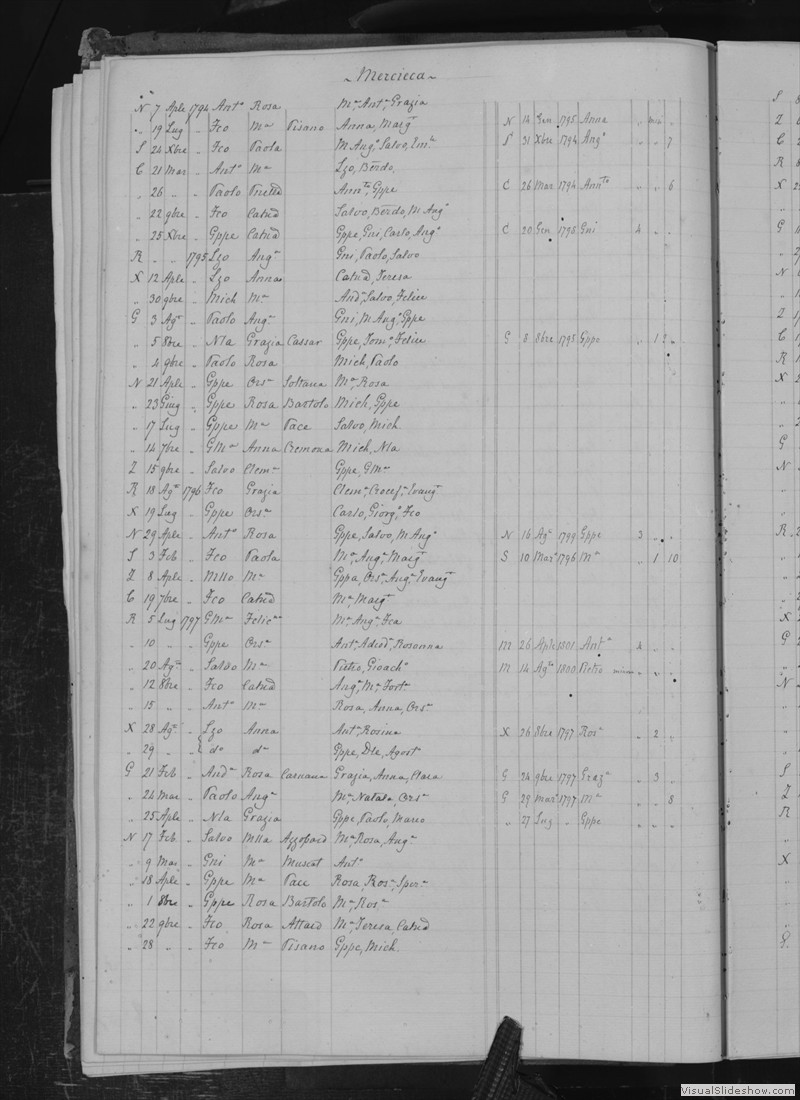 ~ Mercieca ~
N 7 Aple 1794 Antº Rosa Mª, Antª, Grazia
„ 19 Lug „ Fco Mª Pisano Anna, Margª N 14 Gen 1795 Anna
S 24 Xbre „ Fco Paola M Angº Salvo, Emlª S 31 Xbre 1794 Angº „ „ 7
C 21 Mar „ Antº Mª Lzo, Berdo,
„ 26 „ „ Paolo Annta, Gppe C 26 Mar 1794 Annta „ „ 6
„ 22 9bre „ Fco Catnd Salvo, Berdo, M Angº
„ 25 Xbre „ Gppe Catnd Gppe, Gni, Carlo, Angº C 20 Gen 1798 Gni 4 „ „
R „ „ 1795 Lzo Angª Gni, Paolo, Salvo
X 12 Aple „ Lzo Anna Catnd, Teresa
„ 30 9bre „ Mich Mª Andª, Salvo, Felice
G 3 Agº „ Paolo Angª Gni, M Angº, Gppe
„ 5 8bre „ Nla Grazia Cassar Gppe, Tomº, Felice G 8 8bre 1795 Gppe
„ 4 9bre „ Paolo Rosa Mich, Paolo
N 21 Aple „ Gppe Orsª Soltana Mª, Rosa
„ 23 Giug „ Gppe Rosa Bartolo Mich, Gppe
„ 17 Lug „ Gppe Mª Pace Salvo, Mich
„ 14 7bre „ GMª Anna Cremona Mich, Nla
Z 15 9bre „ Salvo Clemª Gppe, GMª
R 18 Agº 1796 Fco Grazia Clemª, Crocefª, Evangª
X 19 Lug „ Gppe Orsª Carlo, Giorgº, Fco
N 29 Aple „ Antº Rosa Gppe, Salvo, M Angº N 16 Agº 1799 Gppe 3 „ „
S 3 Feb „ Fco Paola Mª, Angª, Margª S 10 Marº 1796 Mª „ 1 10
Z 8 Aple „ Mllo Mª Gppa, Orsª, Angª, Evangª
C 19 7bre „ Fco Catnd Mª, Margª
R 5 Lug 1797 GMª Felicª Mª, Angª, Fca
„ 10 „ „ Gppe Orsª Antª, Adeodª, Rosonna M 26 Aple 1801 Antª 4 „ „
„ 20 Agº „ Salvo Mª Pietro, Gioachº M 14 Agº 1800 Pietro
„ 12 8bre „ Fco Catnd Angª, Mª, Fortª
„ 15 „ „ Antº Mª Rosa, Anna, Orsª
X 28 Agº „ Lzo Anna Antª, Rosina X 26 8bre 1797 Rosª „ 2 „
„ 29 „ „ dº dª Gppe, Dle, Agostº
G 21 Feb „ Andª Rosa Caruana Grazia, Anna, Clara G 24 9bre 1797 Grazª „ 3 „
„ 24 Mar „ Paolo Angª Mª, Natala, Orsª G 29 Marº 1797 Mª „ „ 8
„ 25 Aple „ Nla Grazia Gppe, Paolo, Marco „ 27 Lug „ Gppe „ „ „
N 17 Feb „ Salvo Mlla Azzopard Mª, Rosa, Angª
„ 9 Mar „ Gni Mª Muscat Antº
„ 18 Aple „ Gppe Mª Pace Rosa, Rosª, Sperª
„ 1 8bre „ Gppe Rosa Bartolo Mª, Rosª
„ 22 9bre „ Fco Rosa Attard Mª, Teresa, Catnd
„ 28 „ „ Fco Mª Pisano Gppe, Mich.
VisualSlideshow.com